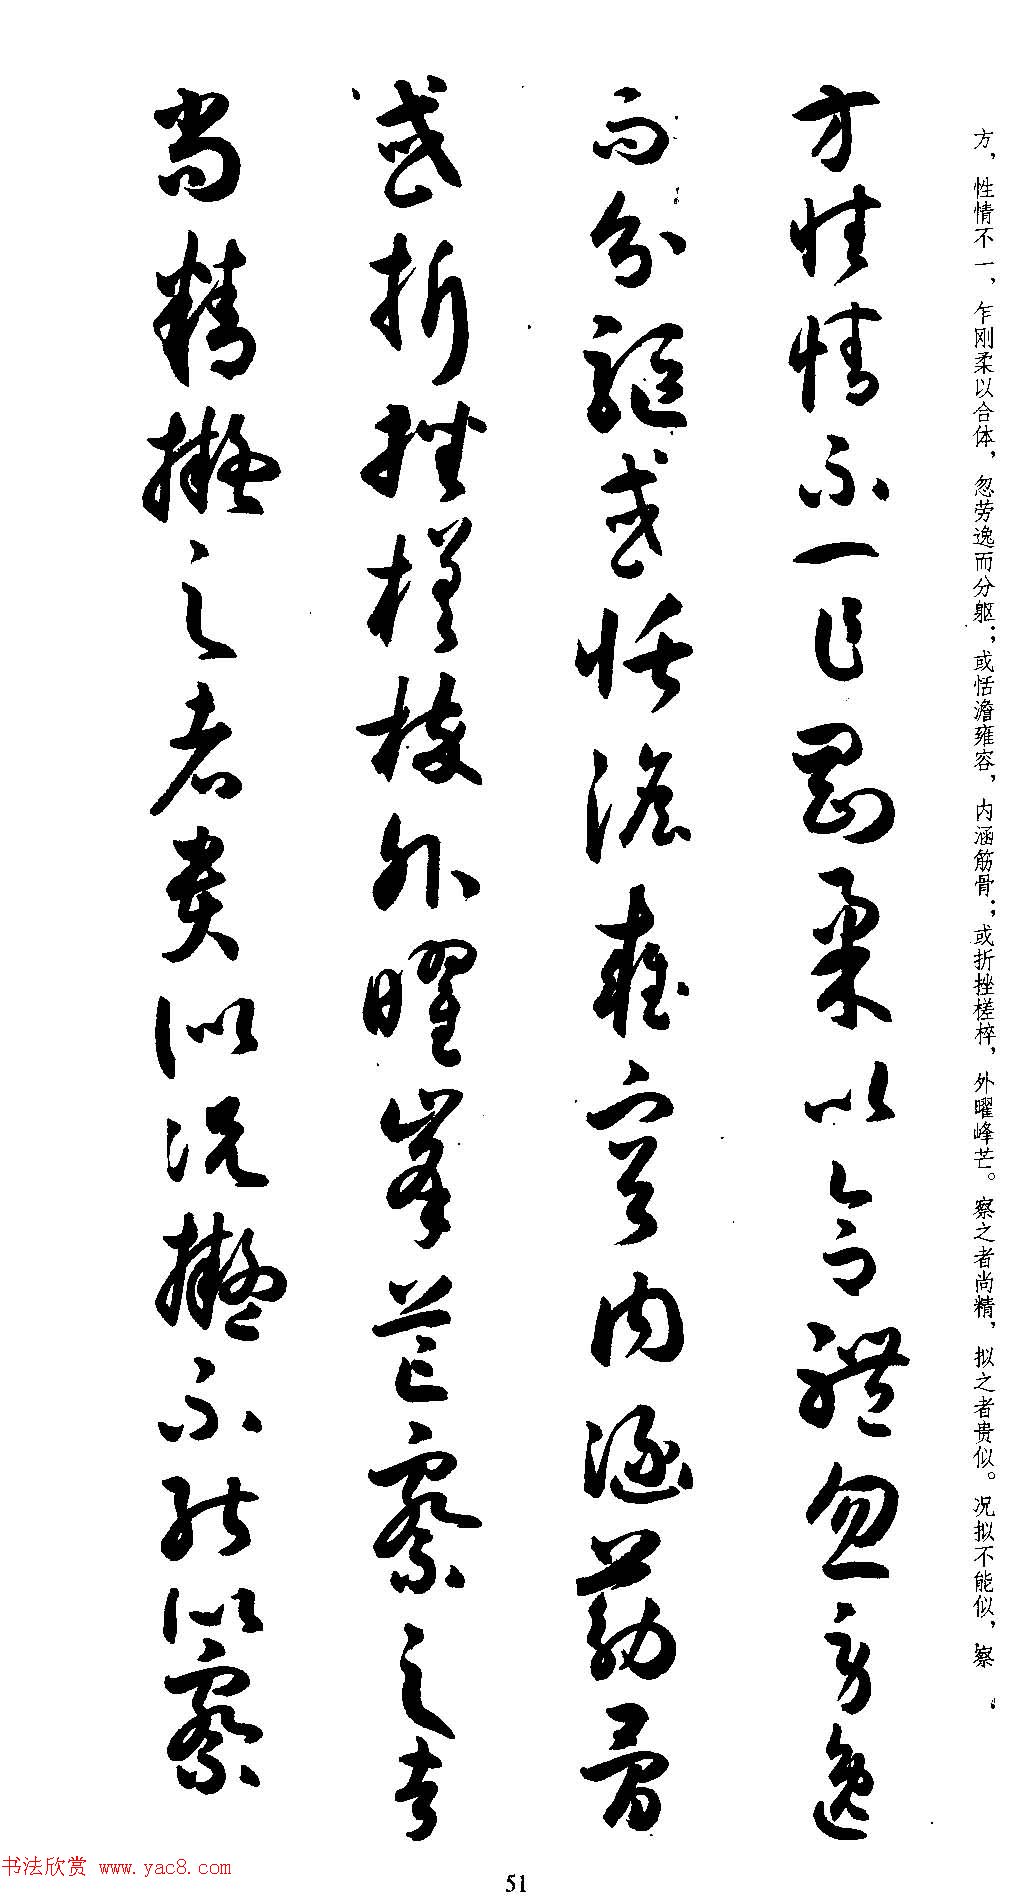 方，性情不一，乍刚柔以合体，忽劳逸而分躯；或恬澹雍容，内涵筋骨；或折挫槎枿，外曜峰芒。察之者尚精，拟之者贵似。况拟不能似，察
方性情不一乍剛柔以合體忽勞逸
而分軀或恬澹雍容內涵筋骨
或折挫槎枿外曜峯芒察之者
尚精擬之者貴似況擬不能似察
书法欣赏 www.yac8.com
51